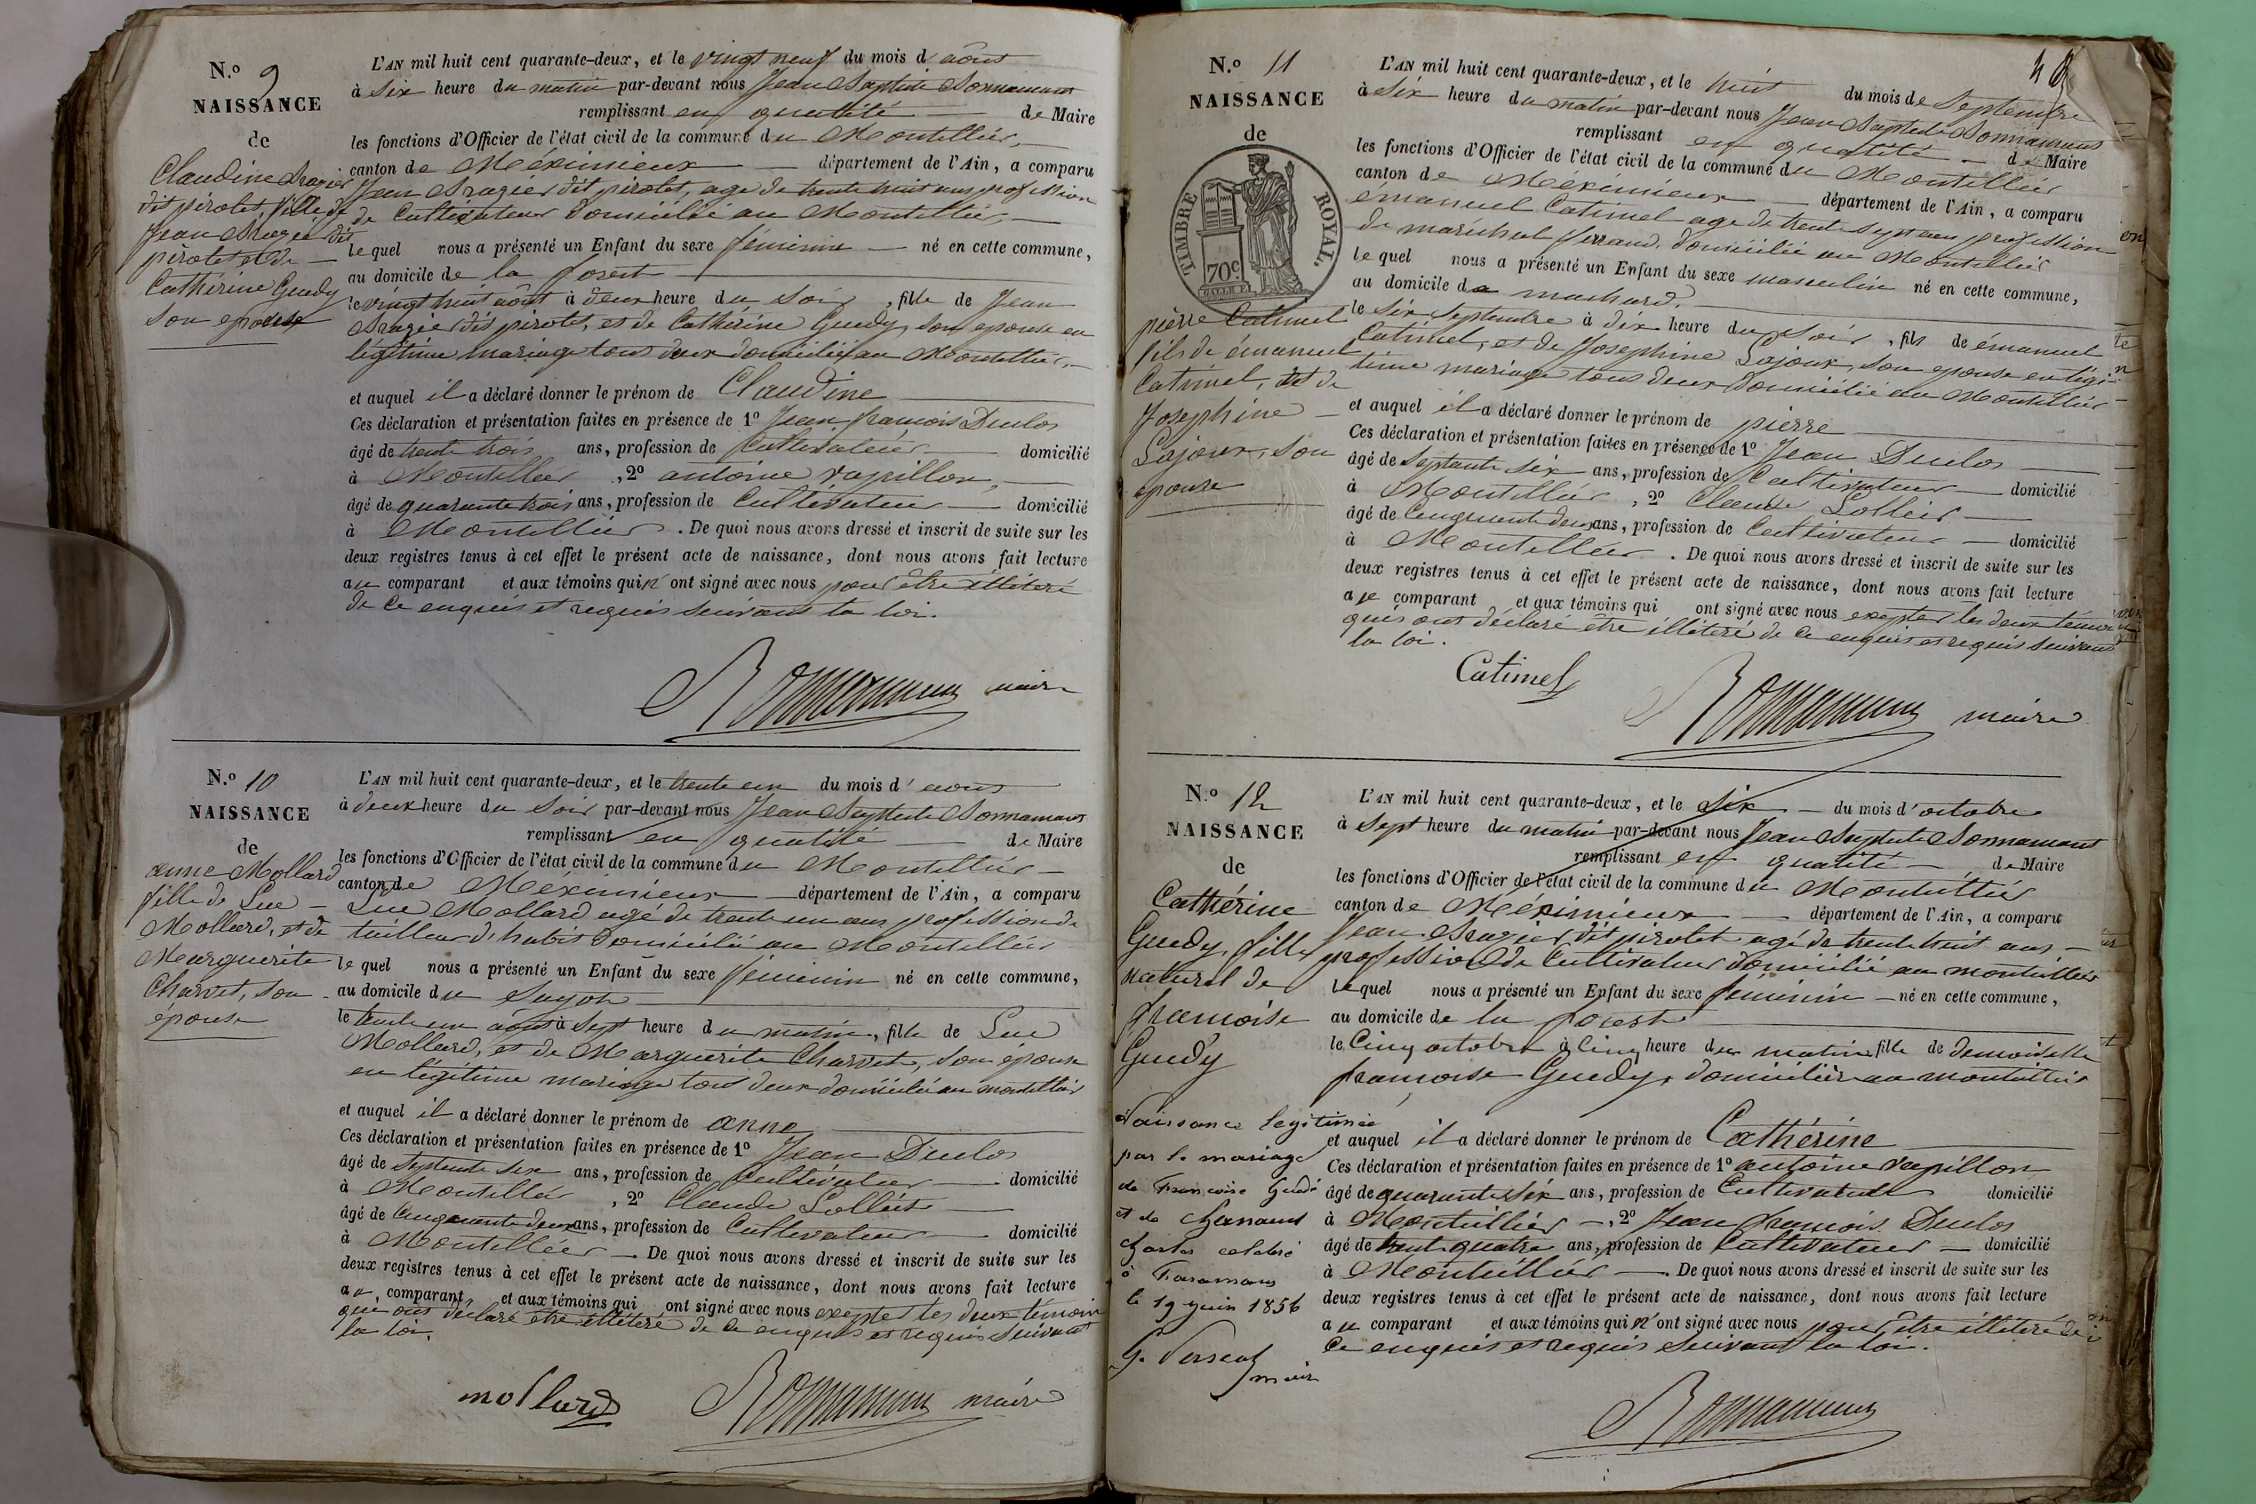 N.º 9
NAISSANCE
de
Claudine Dragier
dit pirolet, fille de
Jean Dragier dit
pirolet et de
Cathérine Guedy
son epouse
L'AN mil huit cent quarante-deux, et le vingt neuf du mois d'août
à six heure du matin par-devant nous Jean Baptiste Bonnamant
remplissant en qualité de Maire
les fonctions d'Officier de l'état civil de la commune du Montellier
canton de Méximieux département de l'Ain, a comparu
Jean Dragier dit pirolet, age de trente huit ans profession
de Cultivateur domicilié au Montellier
le quel nous a présenté un Enfant du sexe féminin né en cette commune,
au domicile de la forest
le vingt huit août à deux heure du soir, fille de Jean
Dragier dit pirolet, et de Cathérine Guedy, son epouse en
légitime mariage tous deux domicilié au Montellier
et auquel il a déclaré donner le prénom de Claudine
Ces déclaration et présentation faites en présence de 1º Jean françois Duclos
âgé de trente trois ans, profession de Cultivateur domicilié
à Montellier, 2º antoine vapillon,
âgé de quarante trois ans, profession de Cultivateur domicilié
à Montellier. De quoi nous avons dressé et inscrit de suite sur les
deux registres tenus à cet effet le présent acte de naissance, dont nous avons fait lecture
au comparant et aux témoins qui n'ont signé avec nous pour être illiteré
de ce enquis et requis suivant la loi.
Bonnamant maire
N.º 10
NAISSANCE
de
anne Mollard
fille de Luc
Mollard, et de
Marguerite
Charvet, son
épouse
L'AN mil huit cent quarante-deux, et le trente un du mois d'aout
à deux heure du soir par-devant nous Jean Baptiste Bonnamant
remplissant en qualité de Maire
les fonctions d'Officier de l'état civil de la commune du Montellier
canton de Méximieux département de l'Ain, a comparu
Luc Mollard agé de trente un ans profession de
tailleur d'habit domicilié au Montellier
le quel nous a présenté un Enfant du sexe féminin né en cette commune,
au domicile du
le trente un août à sept heure du matin, fille de Luc
Mollard, et de Marguerite Charvet, son épouse
en légitime mariage tous deux domicilié au montellier
et auquel il a déclaré donner le prénom de anne
Ces déclaration et présentation faites en présence de 1º Jean Duclos
âgé de septente six ans, profession de Cultivateur domicilié
à Montellier, 2º Claude
âgé de Cinquante deux ans, profession de Cultivateur domicilié
à Montellier. De quoi nous avons dressé et inscrit de suite sur les
deux registres tenus à cet effet le présent acte de naissance, dont nous avons fait lecture
au comparant et aux témoins qui ont signé avec nous excepter les deux témoin
qui ont déclaré etre illiteré de ce enquis et requis suivant
la loi.
mollard Bonnamant maire
48
N.º 11
NAISSANCE
de
TIMBRE ROYAL.
70c
pièrre Catimel
fils de émanuel
Catimel, et de
Josephine
Lajoux, son
épouse
L'AN mil huit cent quarante-deux, et le huit du mois de Septembre
à six heure du matin par-devant nous Jean Baptiste Bonnamant
remplissant en qualité de Maire
les fonctions d'Officier de l'état civil de la commune du Montellier
canton de Méximieux département de l'Ain, a comparu
émanuel Catimel age de trente sept ans profession
de maréchal ferrand, domicilié au Montellier
le quel nous a présenté un Enfant du sexe masculin né en cette commune,
au domicile de machard.
le six septembre à dix heure du soir, fils de émanuel
Catimel, et de Josephine Lajoux, son epouse en légi-
time mariage tous deux domicilié au Montellier
et auquel il a déclaré donner le prénom de pièrre
Ces déclaration et présentation faites en présence de 1º Jean Duclos
âgé de septante six ans, profession de Cultivateur domicilié
à Montellier, 2º Claude
âgé de Cinquante deux ans, profession de Cultivateur domicilié
à Montellier. De quoi nous avons dressé et inscrit de suite sur les
deux registres tenus à cet effet le présent acte de naissance, dont nous avons fait lecture
au comparant et aux témoins qui ont signé avec nous excepter les deux témoin
qui ont déclaré etre illiteré de ce enquis et requis suivant
la loi.
Catimel Bonnamant maire
N.º 12
NAISSANCE
de
Cathérine
Guedy, fille
naturel de
françoise
Guedy
Naissance légitimée
par le mariage
de Françoise Guédi
et de Chanaut
Charles célébré
à Faramans
le 19 juin 1856
maire
L'AN mil huit cent quarante-deux, et le six du mois d'octobre
à sept heure du matin par-devant nous Jean Baptiste Bonnamant
remplissant en qualité de Maire
les fonctions d'Officier de l'état civil de la commune du Montellier
canton de Méximieux département de l'Ain, a comparu
Jean Dragier dit pirolet agé de trente huit ans
profession de Cultivateur domicilié au montellier
le quel nous a présenté un Enfant du sexe féminin né en cette commune,
au domicile de la forest
le Cinq octobre à Cinq heure du matin fille de demoiselle
françoise Guedy, domiciliée au montellier
et auquel il a déclaré donner le prénom de Cathérine
Ces déclaration et présentation faites en présence de 1º antoine vapillon
âgé de quarante six ans, profession de Cultivateur domicilié
à Montellier, 2º Jean françois Duclos
âgé de trent quatre ans, profession de Cultivateur domicilié
à Montellier. De quoi nous avons dressé et inscrit de suite sur les
deux registres tenus à cet effet le présent acte de naissance, dont nous avons fait lecture
au comparant et aux témoins qui n'ont signé avec nous pour être illiteré de
ce enquis et requis suivant la loi.
Bonnamant